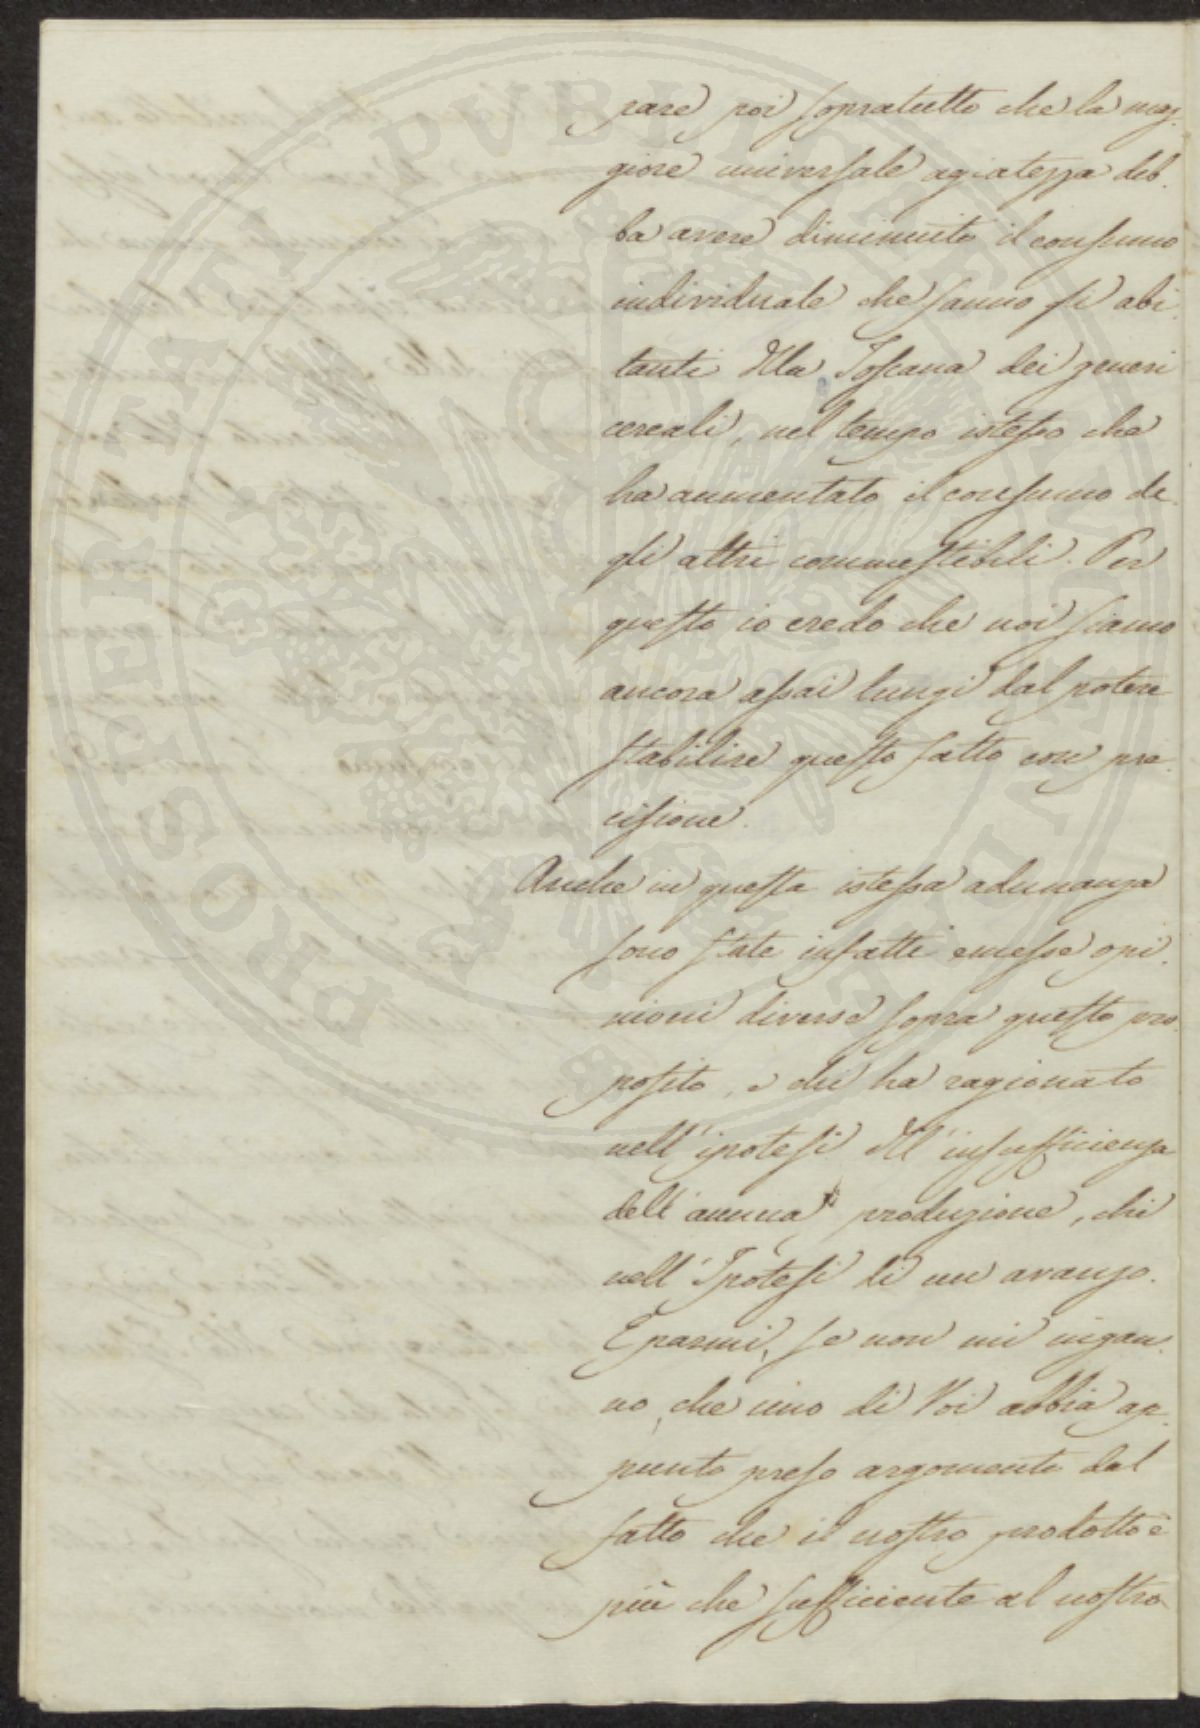 pare poi sopratutto che la mag-
giore universale agiatezza deb-
ba avere diminuito il consumo
individuale che fanno gli abi-
tanti della Toscana dei generi
cereali, nel tempo istesso che
ha aumentato il consumo de-
gli altri commestibili. Per
questo io credo che noi siamo
ancora assai lungi dal potere
stabilire questo fatto con pre-
cisione.
Anche in questa istessa adunanza
sono state infatti emesse opi-
nioni diverse sopra questo pro-
posito, e chi ha ragionato
nell'ipotesi dell'insufficienza
dell'annua produzione, chi
nell'Ipotesi di un avanzo.
E parmi, se non mi ingan-
no, che uno di Voi abbia ap-
punto preso argomento dal
fatto che il nostro prodotto è
più che sufficiente al nostro
PROSPERITATI PUBLICAE AUGENDAE